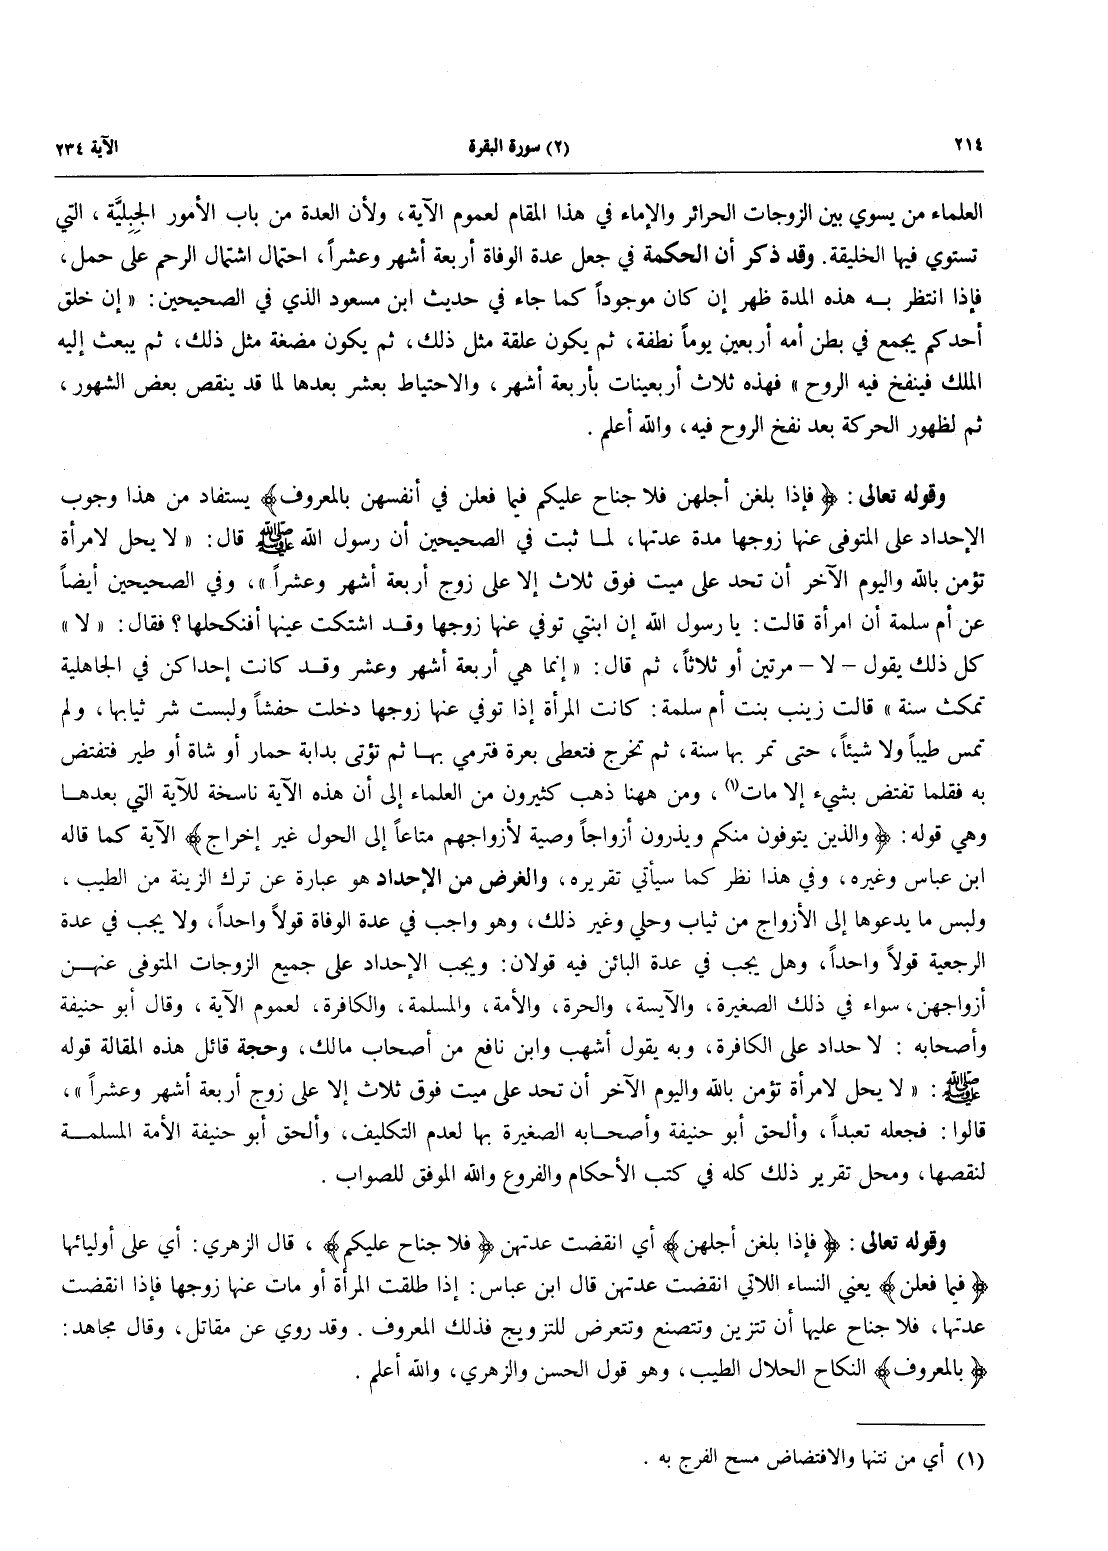 ٢١٤
(٢) سورة البقرة
الآية ٢٣٤
العلماء من يسوي بين الزوجات الحرائر والإماء في هذا المقام لعموم الآية، ولأن العدة من باب الأمور الجِبِلِيَّة ، التي
تستوي فيها الخليقة. وقد ذكر أن الحكمة في جعل عدة الوفاة أربعة أشهر وعشراً، احتمال اشتمال الرحم على حمل،
فإذا انتظر بـه هذه المدة ظهر إن كان موجوداً كما جاء في حديث ابن مسعود الذي في الصحيحين: « إن خلق
أحدكم يجمع في بطن أمه أربعين يوماً نطفة، ثم يكون علقة مثل ذلك، ثم يكون مضغة مثل ذلك، ثم يبعث إليه
الملك فينفخ فيه الروح » فهذه ثلاث أربعينات بأربعة أشهر ، والاحتياط بعشر بعدها لما قد ينقص بعض الشهور ،
ثم لظهور الحركة بعد نفخ الروح فيه، والله أعلم .
وقوله تعالى : ﴿ فإذا بلغن أجلهن فلا جناح عليكم فيما فعلن في أنفسهن بالمعروف﴾ يستفاد من هذا وجوب
الإحداد على المتوفى عنها زوجها مدة عدتها، لمـا ثبت في الصحيحين أن رسول الله ﷺ قال: « لا يحل لامرأة
تؤمن بالله واليوم الآخر أن تحد على ميت فوق ثلاث إلا على زوج أربعة أشهر وعشراً »، وفي الصحيحين أيضاً
عن أم سلمة أن امرأة قالت: يا رسول الله إن ابنتي توفي عنها زوجها وقـد اشتكت عينها أفنكحلها ؟ فقال: « لا »
كل ذلك يقول – لا – مرتين أو ثلاثاً، ثم قال: « إنما هي أربعة أشهر وعشر وقـد كانت إحداكن في الجاهلية
تمكث سنة » قالت زينب بنت أم سلمة: كانت المرأة إذا توفي عنها زوجها دخلت حفشاً ولبست شر ثيابها ، ولم
تمس طيباً ولا شيئاً، حتى تمر بها سنة، ثم تخرج فتعطى بعرة فترمي بهـا ثم تؤتى بدابة حمار أو شاة أو طير فتفتض
به فقلما تفتض بشيء إلا مات(١) ، ومن ههنا ذهب كثيرون من العلماء إلى أن هذه الآية ناسخة للآية التي بعدهـا
وهي قوله: ﴿ والذين يتوفون منكم ويذرون أزواجاً وصية لأزواجهم متاعاً إلى الحول غير إخراج﴾ الآية كما قاله
ابن عباس وغيره، وفي هذا نظر كما سيأتي تقريره، والغرض من الإحداد هو عبارة عن ترك الزينة من الطيب ،
ولبس ما يدعوها إلى الأزواج من ثياب وحلي وغير ذلك، وهو واجب في عدة الوفاة قولاً واحداً، ولا يجب في عدة
الرجعية قولاً واحداً، وهل يجب في عدة البائن فيه قولان: ويجب الإحداد على جميع الزوجات المتوفى عنهـن
أزواجهن، سواء في ذلك الصغيرة، والآيسة، والحرة، والأمة، والمسلمة، والكافرة، لعموم الآية ، وقال أبو حنيفة
وأصحابه : لا حداد على الكافرة، وبه يقول أشهب وابن نافع من أصحاب مالك، وحجة قائل هذه المقالة قوله
ﷺ : « لا يحل لامرأة تؤمن بالله واليوم الآخر أن تحد على ميت فوق ثلاث إلا على زوج أربعة أشهر وعشراً »،
قالوا: فجعله تعبداً، وألحق أبو حنيفة وأصحـابه الصغيرة بها لعدم التكليف، وألحق أبو حنيفة الأمة المسلمـة
لنقصها، ومحل تقرير ذلك كله في كتب الأحكام والفروع والله الموفق للصواب .
وقوله تعالى : ﴿ فإذا بلغن أجلهن﴾ أي انقضت عدتهن ﴿ فلا جناح عليكم﴾ ، قال الزهري: أي على أوليائها
﴿ فيما فعلن﴾ يعني النساء اللاتي انقضت عدتهن قال ابن عباس: إذا طلقت المرأة أو مات عنها زوجها فإذا انقضت
عدتها، فلا جناح عليها أن تتزين وتتصنع وتتعرض للتزويج فذلك المعروف . وقد روي عن مقاتل، وقال مجاهد:
﴿ بالمعروف﴾ النكاح الحلال الطيب، وهو قول الحسن والزهري، والله أعلم .
(١) أي من نتنها والافتضاض مسح الفرج به .